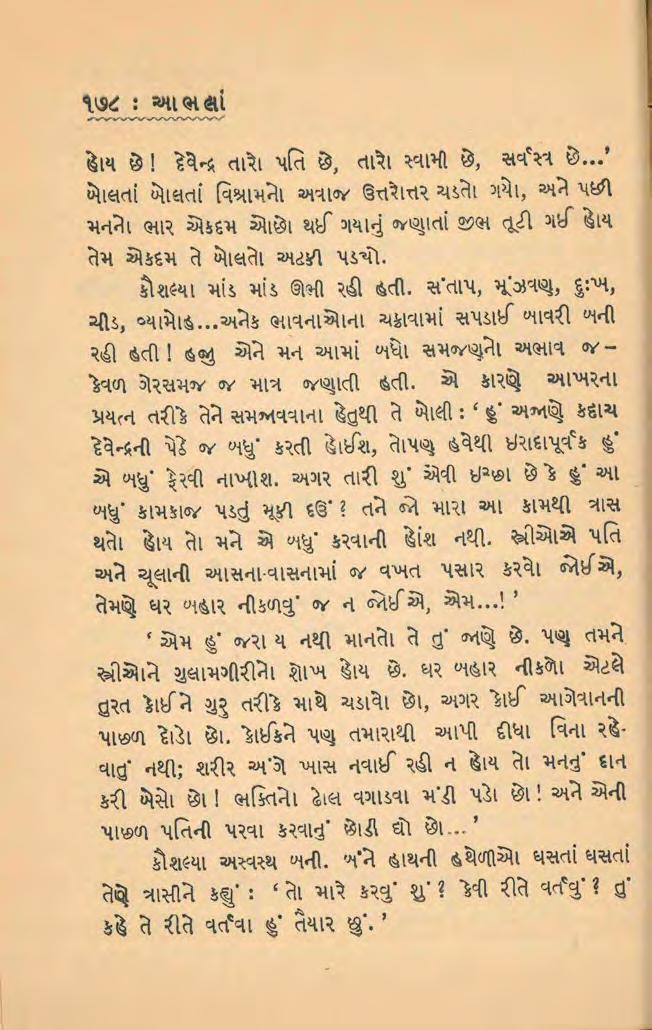 ૧૭૮ : આભલાં
હોય છે! દેવેન્દ્ર તારો પતિ છે, તારો સ્વામી છે, સર્વસ્ત્ર છે...’
બોલતાં બોલતાં વિશ્રામનો અવાજ ઉત્તરોત્તર ચડતો ગયો, અને પછી
મનનો ભાર એકદમ ઓછો થઈ ગયાનું જણાતાં જીભ તૂટી ગઈ હોય
તેમ એકદમ તે બોલતો અટકી પડ્યો.
કૌશલ્યા માંડ માંડ ઊભી રહી હતી. સંતાપ, મૂંઝવણ, દુઃખ,
ચીડ, વ્યામોહ...અનેક ભાવનાઓના ચક્રાવામાં સપડાઈ બાવરી બની
રહી હતી! હજી એને મન આમાં બધો સમજણનો અભાવ જ –
કેવળ ગેરસમજ જ માત્ર જણાતી હતી. એ કારણે આખરના
પ્રયત્ન તરીકે તેને સમજાવવાના હેતુથી તે બોલી : ‘હું અજાણે કદાચ
દેવેન્દ્રની પેઠે જ બધું કરતી હોઈશ, તોપણ હવેથી ઇરાદાપૂર્વક હું
એ બધું ફેરવી નાખીશ. અગર તારી શું એવી ઇચ્છા છે કે હું આ
બધું કામકાજ પડતું મૂકી દઉં? તને જો મારા આ કામથી ત્રાસ
થતો હોય તો મને એ બધું કરવાની હોંશ નથી. સ્ત્રીઓએ પતિ
અને ચૂલાની આસના-વાસનામાં જ વખત પસાર કરવો જોઈએ,
તેમણે ઘર બહાર નીકળવું જ ન જોઈએ, એમ...!’
‘એમ હું જરા ય નથી માનતો તે તું જાણે છે. પણ તમને
સ્ત્રીઓને ગુલામગીરીનો શોખ હોય છે. ઘર બહાર નીકળો એટલે
તુરત કોઈને ગુરુ તરીકે માથે ચડાવો છો, અગર કોઈ આગેવાનની
પાછળ દોડો છો. કોઈકને પણ તમારાથી આપી દીધા વિના રહે-
વાતું નથી; શરીર અંગે ખાસ નવાઈ રહી ન હોય તો મનનું દાન
કરી બેસો છો! ભક્તિનો ઢોલ વગાડવા મંડી પડો છો! અને એની
પાછળ પતિની પરવા કરવાનું છોડી દ્યો છો...’
કૌશલ્યા અસ્વસ્થ બની. બંને હાથની હથેળીઓ ઘસતાં ઘસતાં
તેણે ત્રાસીને કહ્યું : ‘તો મારે કરવું શું? કેવી રીતે વર્તવું? તું
કહે તે રીતે વર્તવા હું તૈયાર છું.’